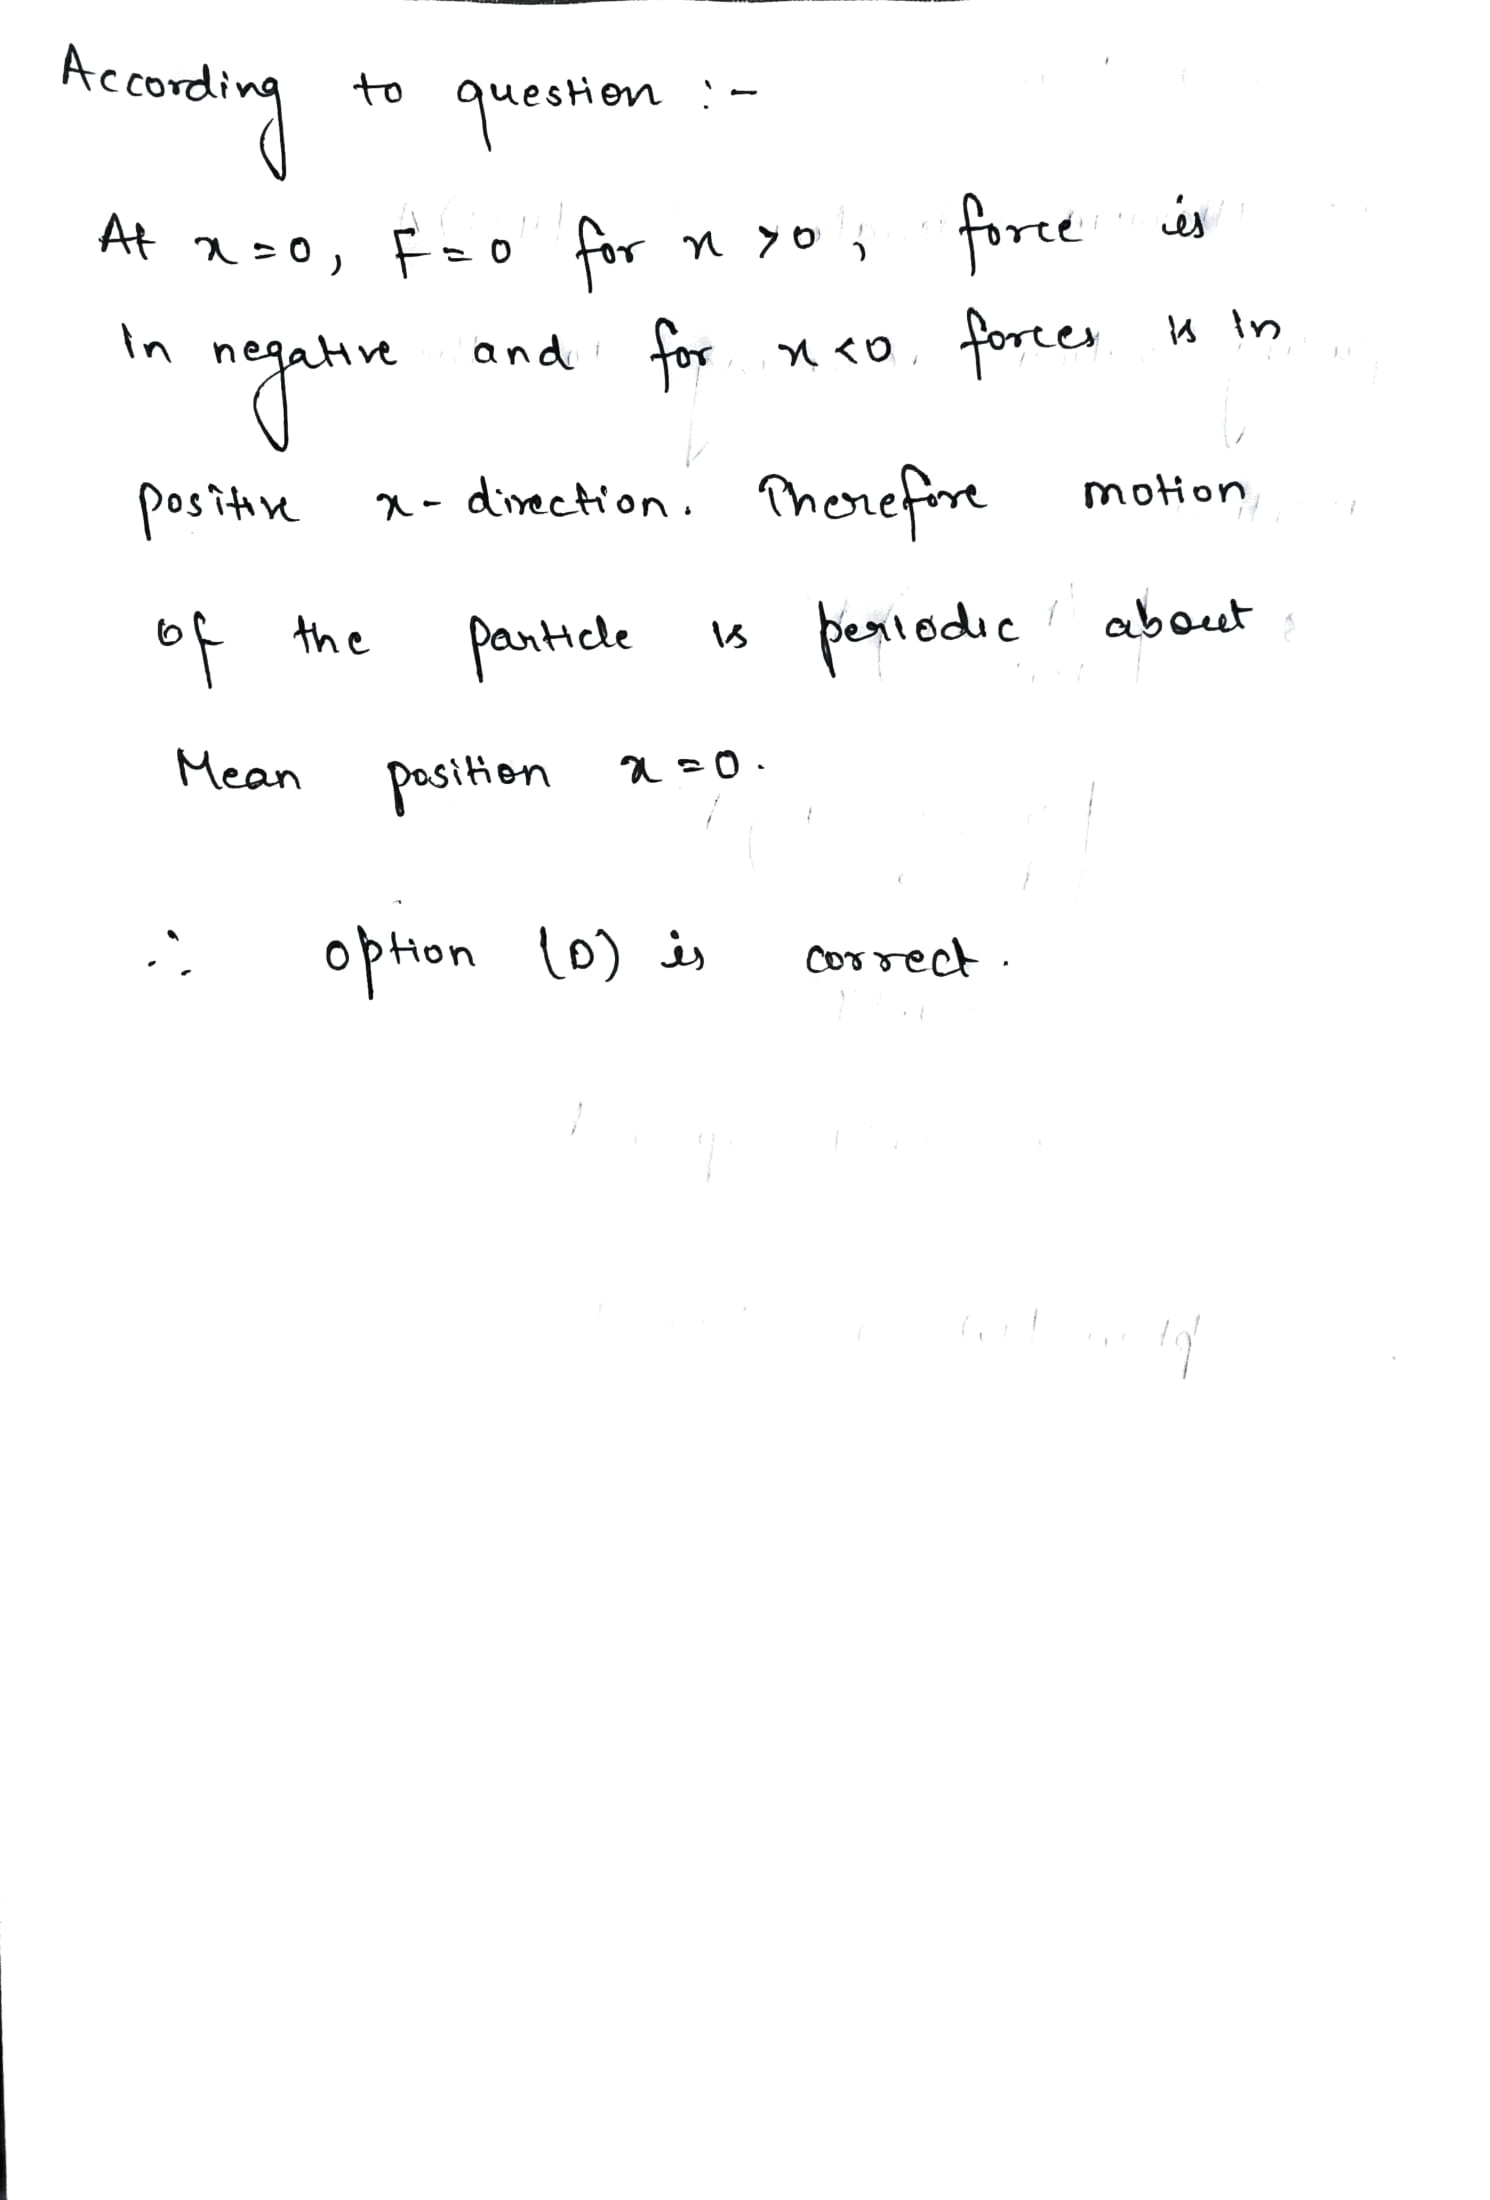 According to question :-
At x=0, F=0 for x >0, force is
in negative and for x<0 forces is in
positive x-direction. Therefore motion
of the particle is periodic about
Mean position x=0.
∴ option (D) is correct.